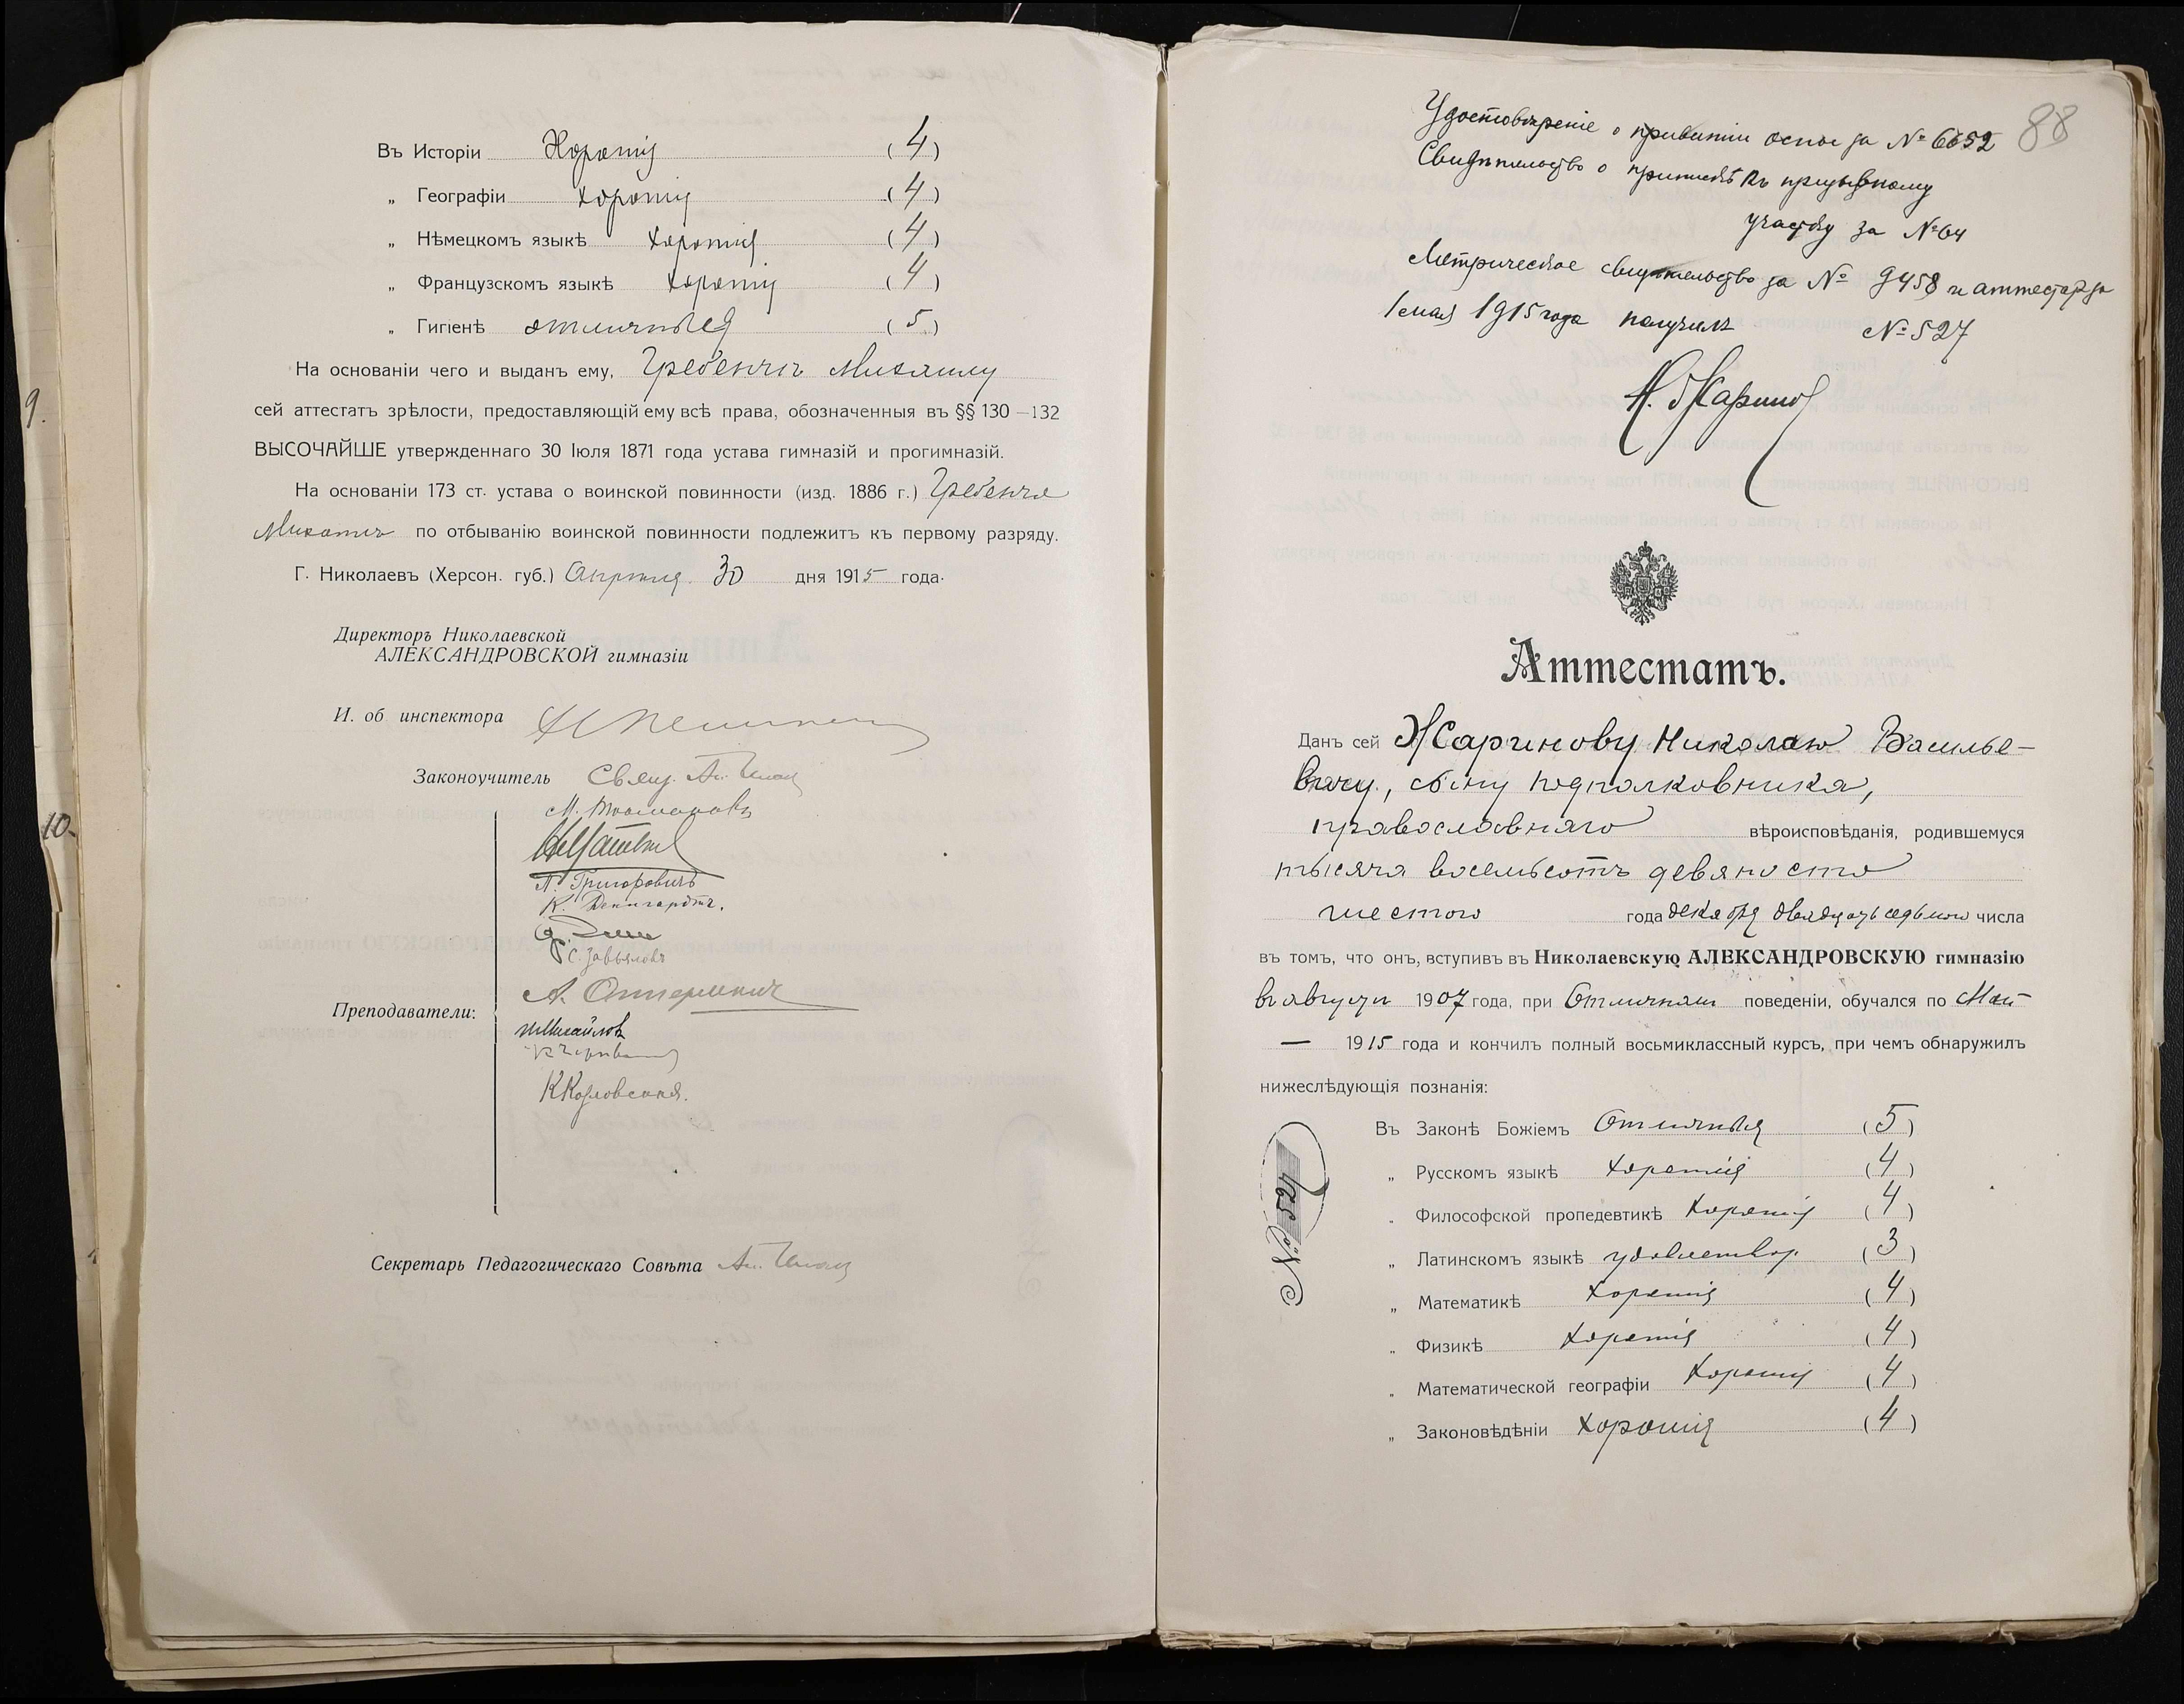 Въ Исторіи Хорошія (4)
„ Географіи хорошія (4)
„ Нѣмецкомъ языкѣ хорошія (4)
„ Французскомъ языкѣ хорошія (4)
„ Гигіенѣ отличныя (5)
На основаніи чего и выданъ ему, Гребенчѣ Михаилу
сей аттестатъ зрѣлости, предоставляющій ему всѣ права, обозначенныя въ §§ 130—132
ВЫСОЧАЙШЕ утвержденнаго 30 Іюля 1871 года устава гимназій и прогимназій.
На основаніи 173 ст. устава о воинской повинности (изд. 1886 г.) Гребенча
Михаилъ по отбыванію воинской повинности подлежитъ къ первому разряду.
Г. Николаевъ (Херсон. губ.) Апрѣля 30 дня 1915 года.
Директоръ Николаевской
АЛЕКСАНДРОВСКОЙ гимназіи
И. об инспектора
Законоучитель Свящ. Ал.
Преподаватели:
Л. Григоровичъ
К.
С. Завьяловъ
А.
Михайловъ
К Козловская.
Секретарь Педагогическаго Совѣта Ал.
9.
10.
88
Удостовѣреніе о привитіи оспы за № 6652
Свидѣтельство о припискѣ къ призывному
участку за № 64
Метрическое свидѣтельство за № 9458 и аттестат за
1 мая 1915 года получилъ № 527
Н. Жаринов
Аттестатъ.
Данъ сей Жаринову Николаю Василье-
вичу, сыну подполковника,
православнаго вѣроисповѣданія, родившемуся
тысяча восемьсотъ девяносто
шестого года декабря двадцать седьмого числа
въ томъ, что онъ, вступивъ въ Николаевскую АЛЕКСАНДРОВСКУЮ гимназію
въ августѣ 1907 года, при Отличномъ поведеніи, обучался по Май
— 1915 года и кончилъ полный восьмиклассный курсъ, при чемъ обнаружилъ
нижеслѣдующія познанія:
Въ Законѣ Божіемъ Отличныя (5)
„ Русскомъ языкѣ хорошія (4)
„ Философской пропедевтикѣ хорошія (4)
„ Латинскомъ языкѣ удовлетвор. (3)
„ Математикѣ хорошія (4)
„ Физикѣ хорошія (4)
„ Математической географіи хорошія (4)
„ Законовѣдѣніи хорошія (4)
№ 527